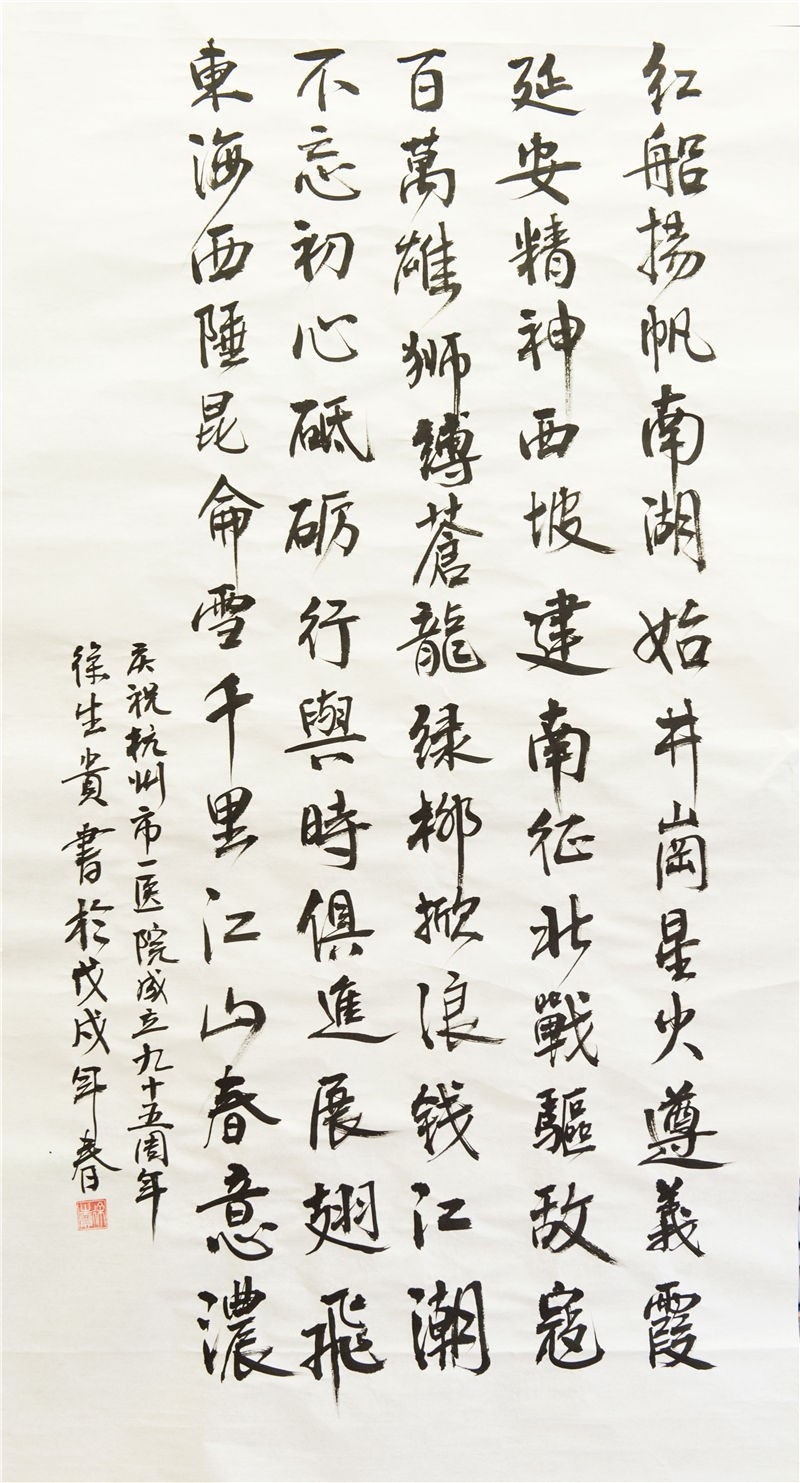 红船揚帆南湖始井崗星火遵義霞
延安精神西坡建南征北戰驅敌寇
百萬雄狮缚蒼龍绿柳掀浪钱江潮
不忘初心砥砺行與時俱進展翅飛
東海西陲昆侖雪千里江山春意濃
庆祝杭州市一医院成立九十五周年
徐生貴書於戊戌年春